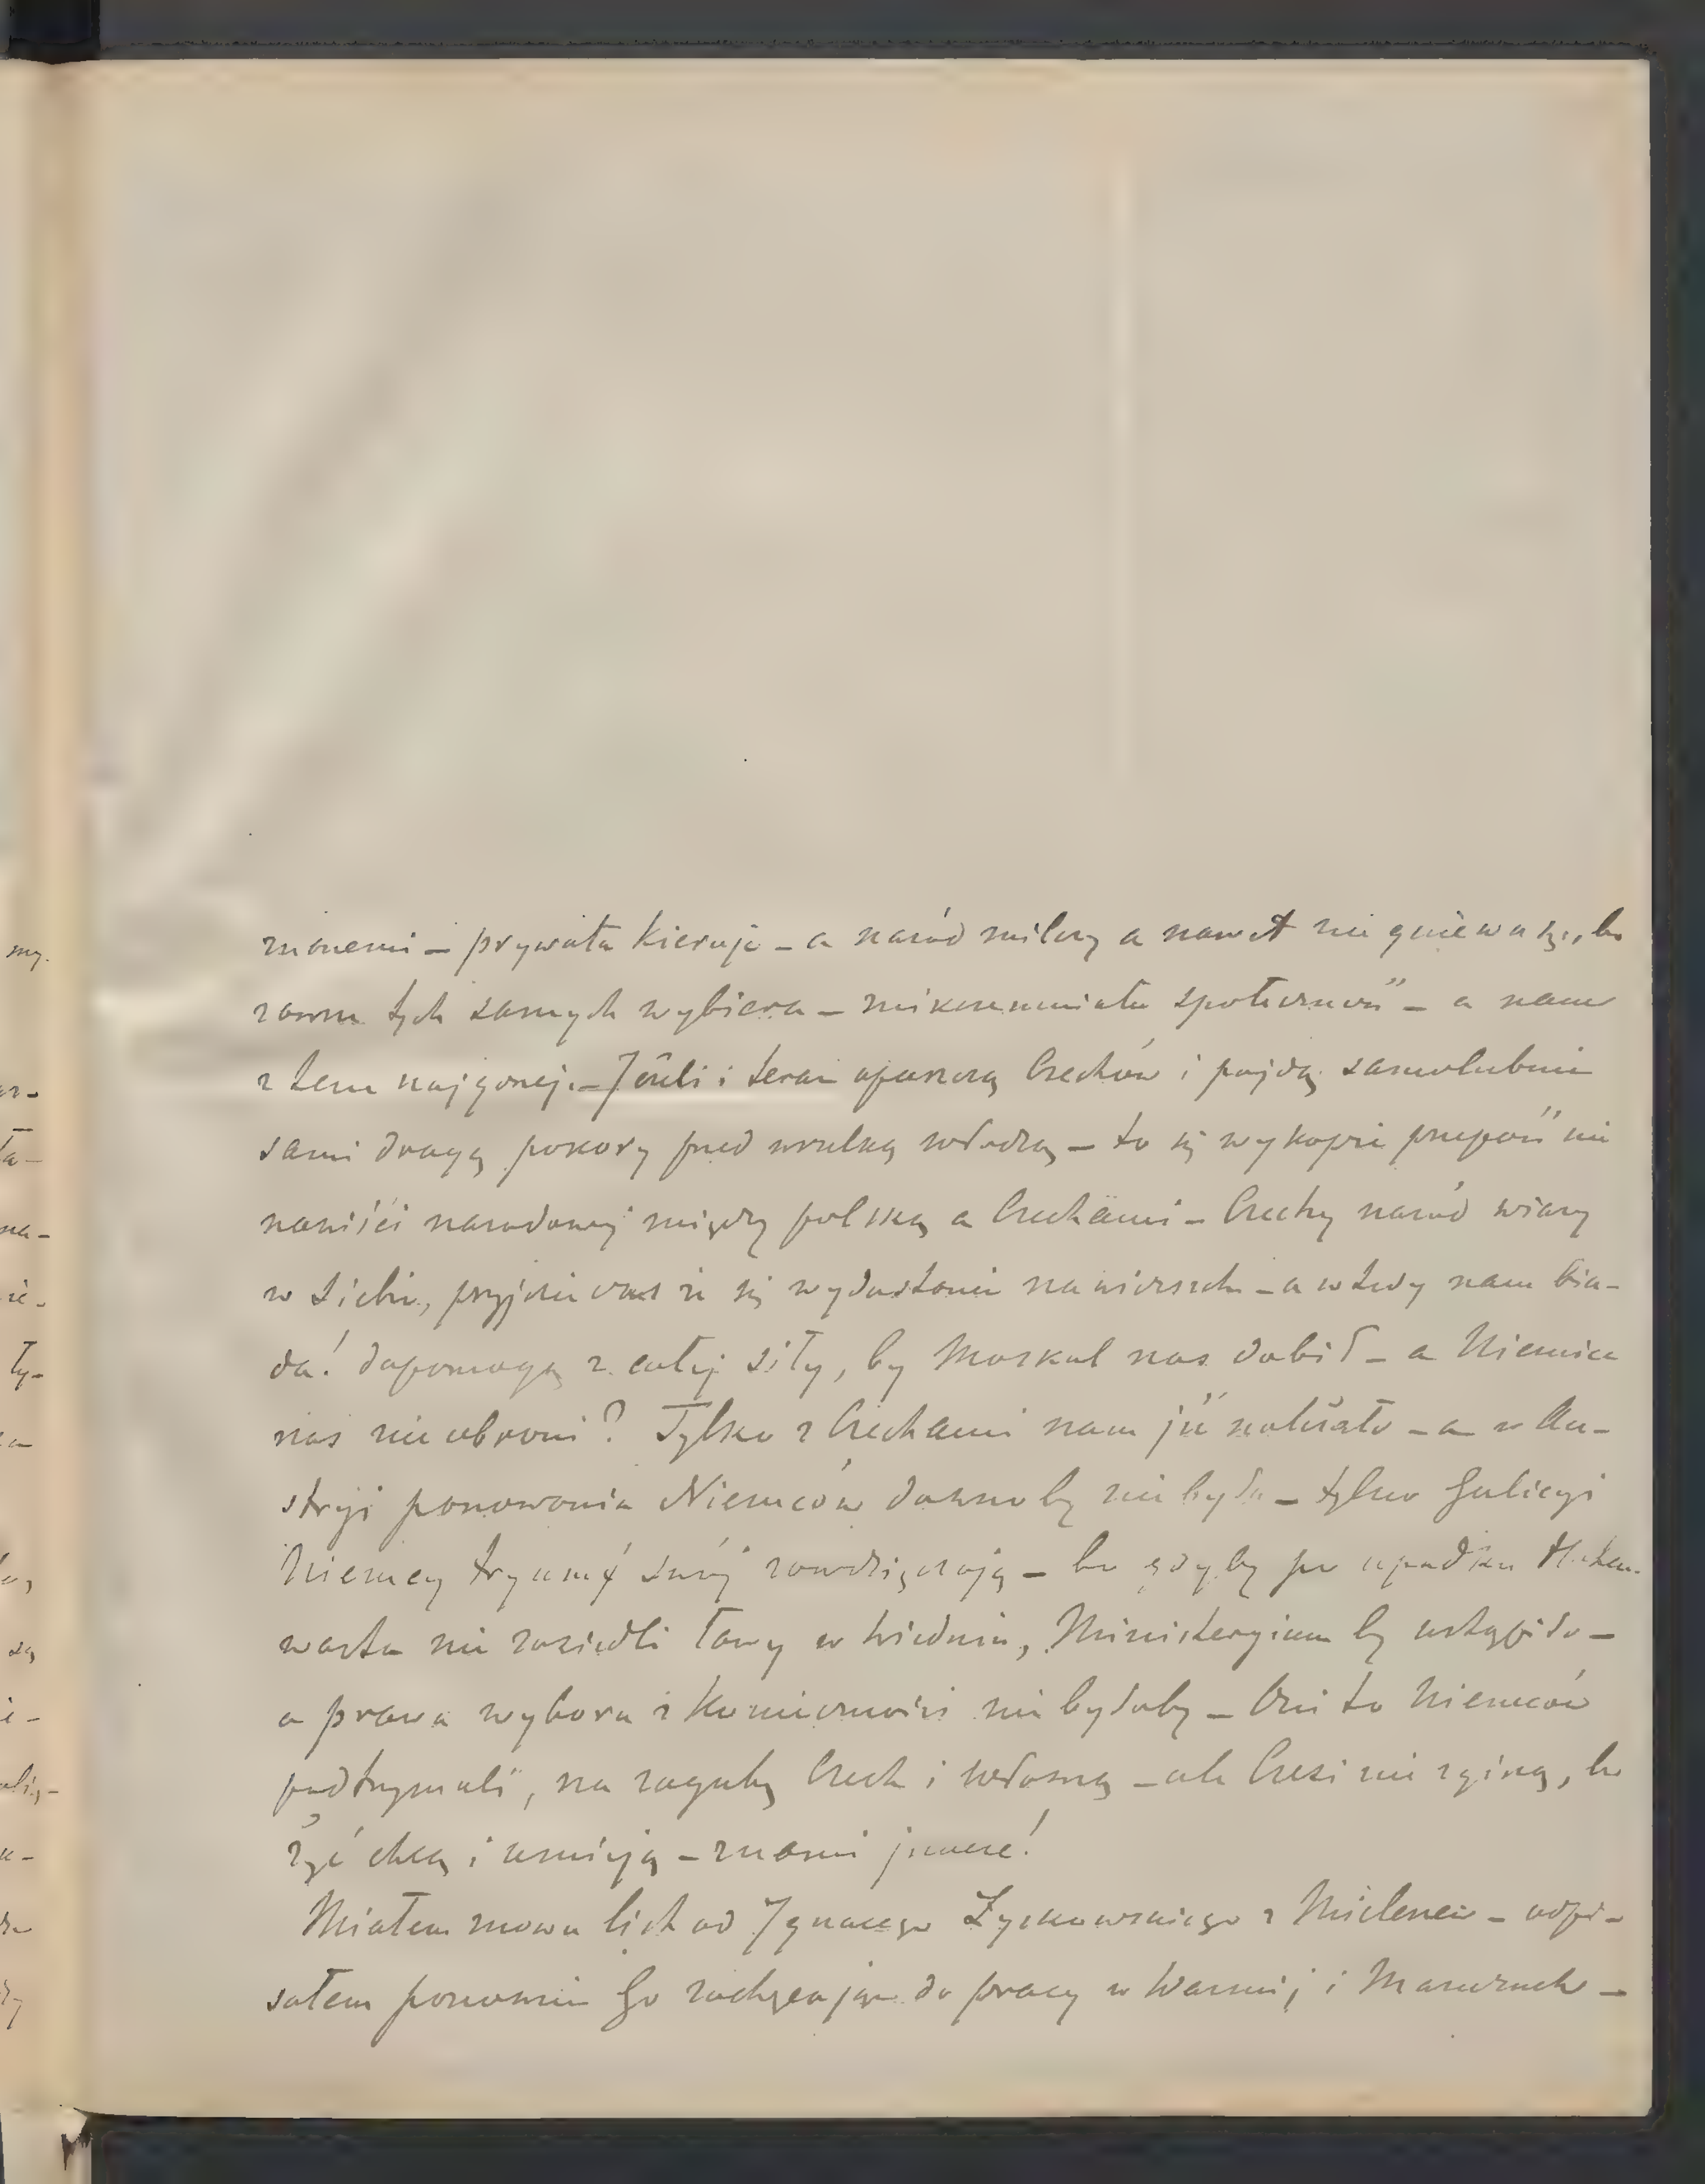 znanemi – prywata kieruje – a naród milczy a nawet nie gniewa się, bo
zawsze tych samych wybiera – społeczność – a nam
z tem najgorzej. – Jeżeli i teraz opuszczą Czechów i pójdą samolubnie
sami drogą pokory przed wszelką władzą – to się wykopie przepaść nie
nawiści narodowej między polską a Czechami – Czechy naród wiary
w siebie, przyjdzie czas że się wydostanie na wierzch – a wtedy nam bia-
da! dopomogą z całej siły, by Moskal nas dobił – a Niemiec
nas nie obroni? Tylko z Czechami nam iść należało – a w Au-
stryi panowania Niemców dawno by nie było – tylko Galicyi
Niemcy tryumf swój zawdzięczają – bo gdyby po upadku Hohen-
warta nie zasiedli ławy w Wiedniu, Ministeryum by ustąpiło –
a prawa wyboru z konieczności nie byłoby – Oni to Niemców
podtrzymali, na zagubę Czech i własną – ale Czesi nie zginą, bo
żyć chcą i umieją – z nami inaczej!
Miałem znowu list od Ignacego Łyskowskiego z Mileszew – odpi-
sałem ponownie Go zachęcając do pracy w Warmij i Mazurach –
my.